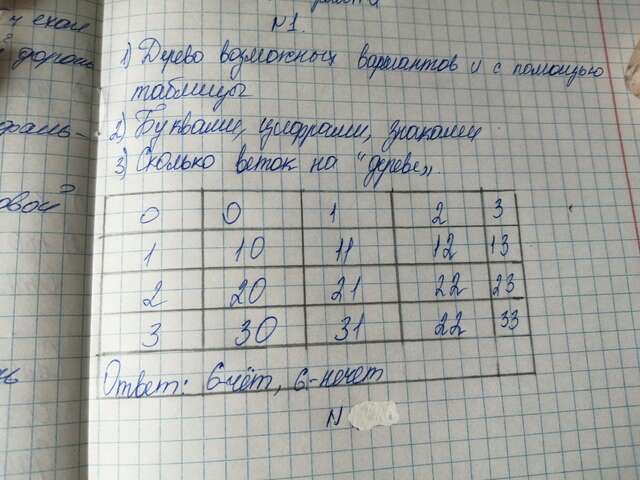 N1.
1) Дерево возможных вариантов и с помощью
таблицы
2) Буквами, цифрами, знаками
3) Сколько веток на "дереве".
0 0 1 2 3
1 10 11 12 13
2 20 21 22 23
3 30 31 22 33
Ответ: 6-чёт, 6-нечет
N